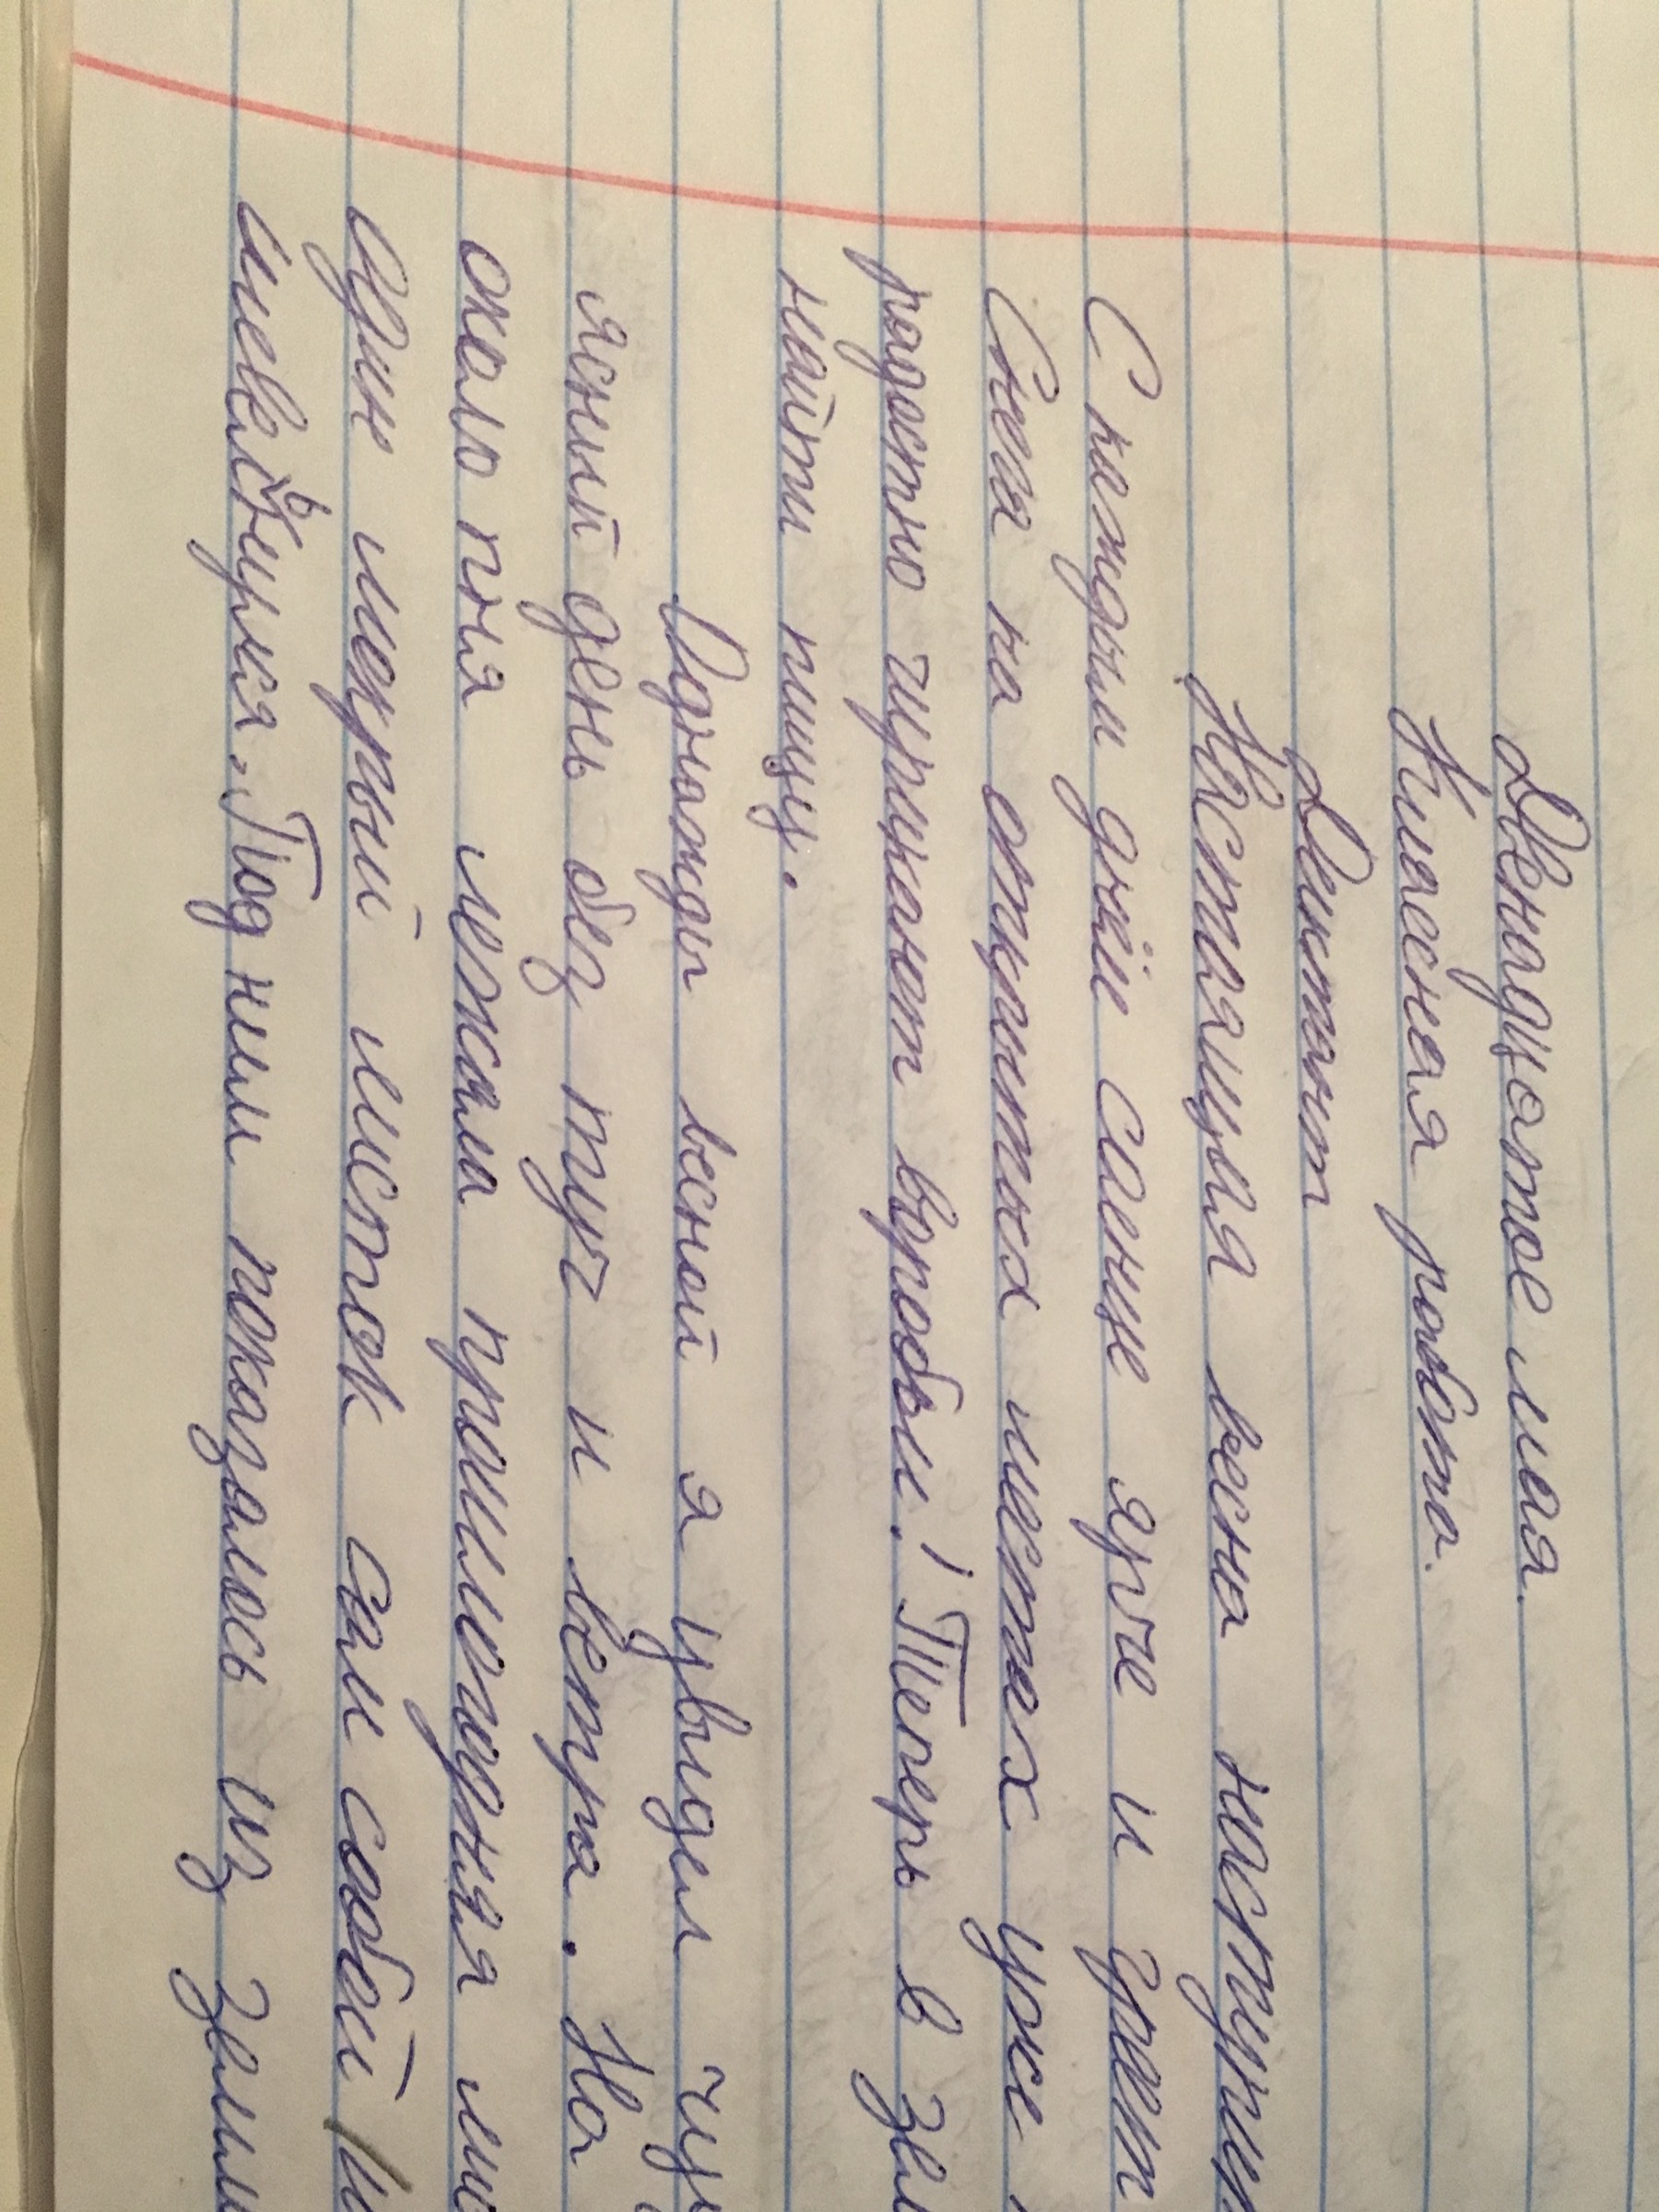 Двенадцатое мая.
Классная работа.
Диктант
Настоящая весна наступил
С каждым днём солнце ярче и греет
Снега на открытых местах уже
радостно чирикают воробьи! Теперь в
найти пищу.
Однажды весной я увидел
ясный день без туч и ветра. На
около пня лежала прошлогодняя
Один мокрый листок сам собой
шевельнулся. Под ним показалось из земли